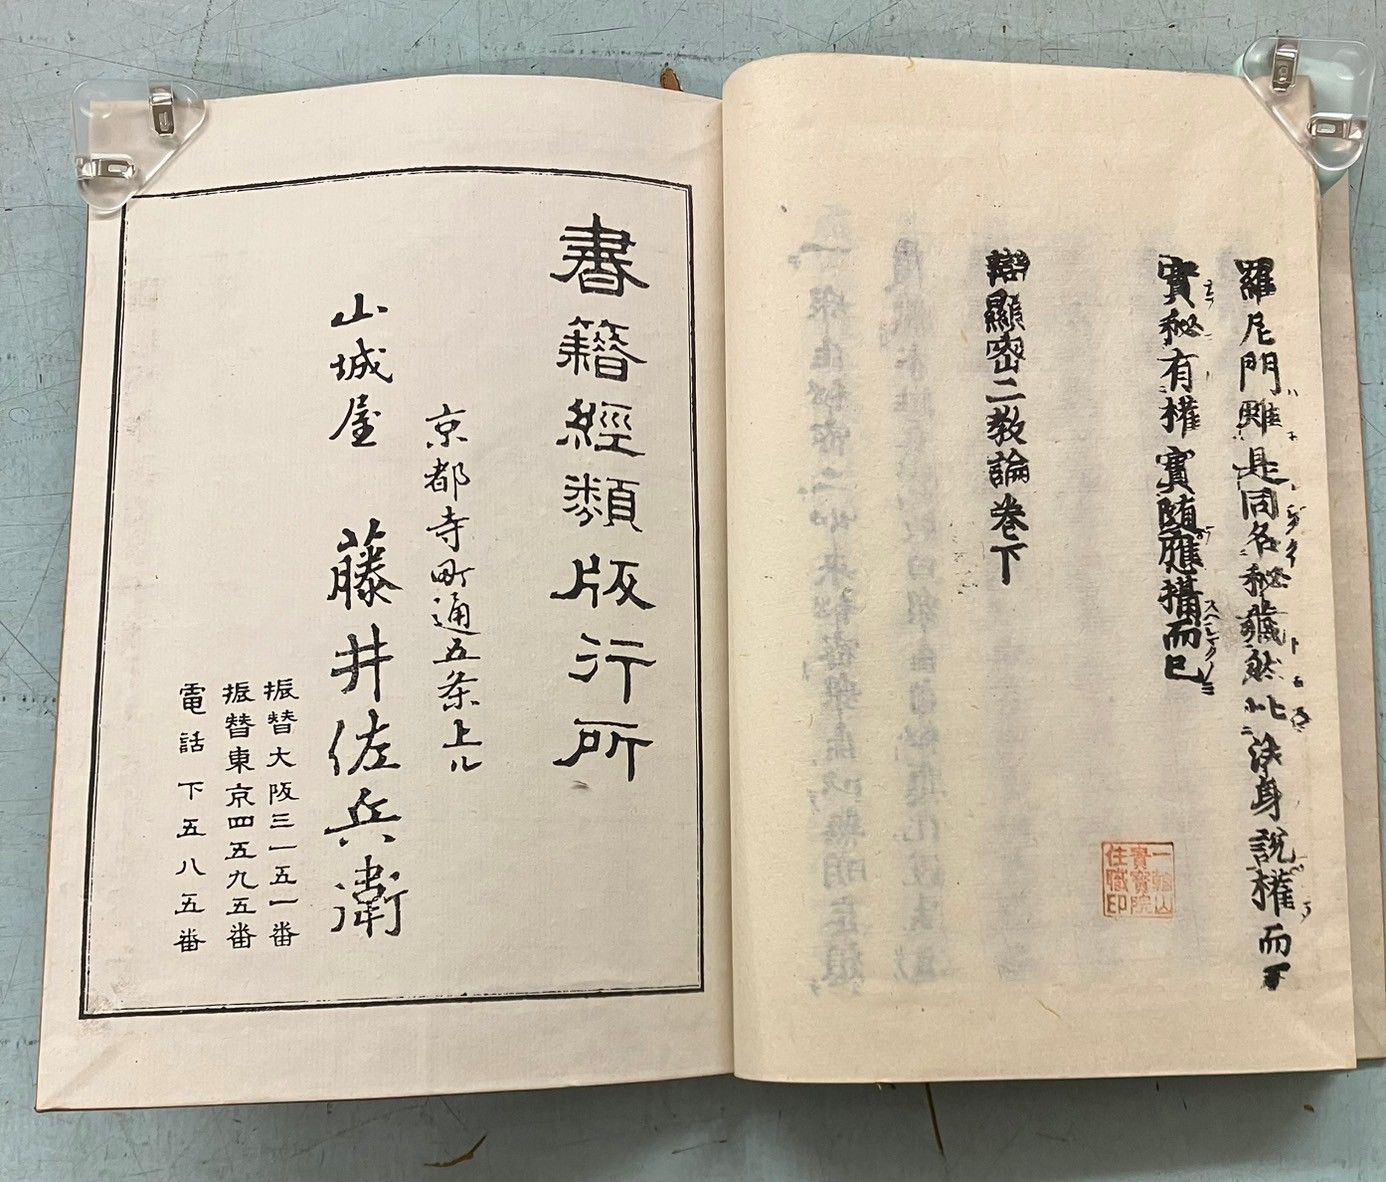 羅尼門雖是同名秘藏然比法身說權而不
實秘有權實隨應攝而已
辯顯密二教論卷下
一輪山
實寶院
住職印
書籍經類版行所
京都寺町通五条上ル
山城屋 藤井佐兵衛
振替大阪三一五一番
振替東京四五九五番
電話下五八五番